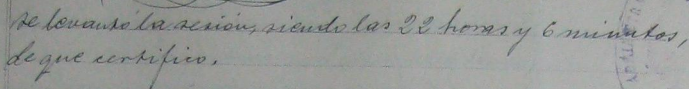 se levantó la sesión, siendo las 22 horas y 6 minutos,
de que certifico.